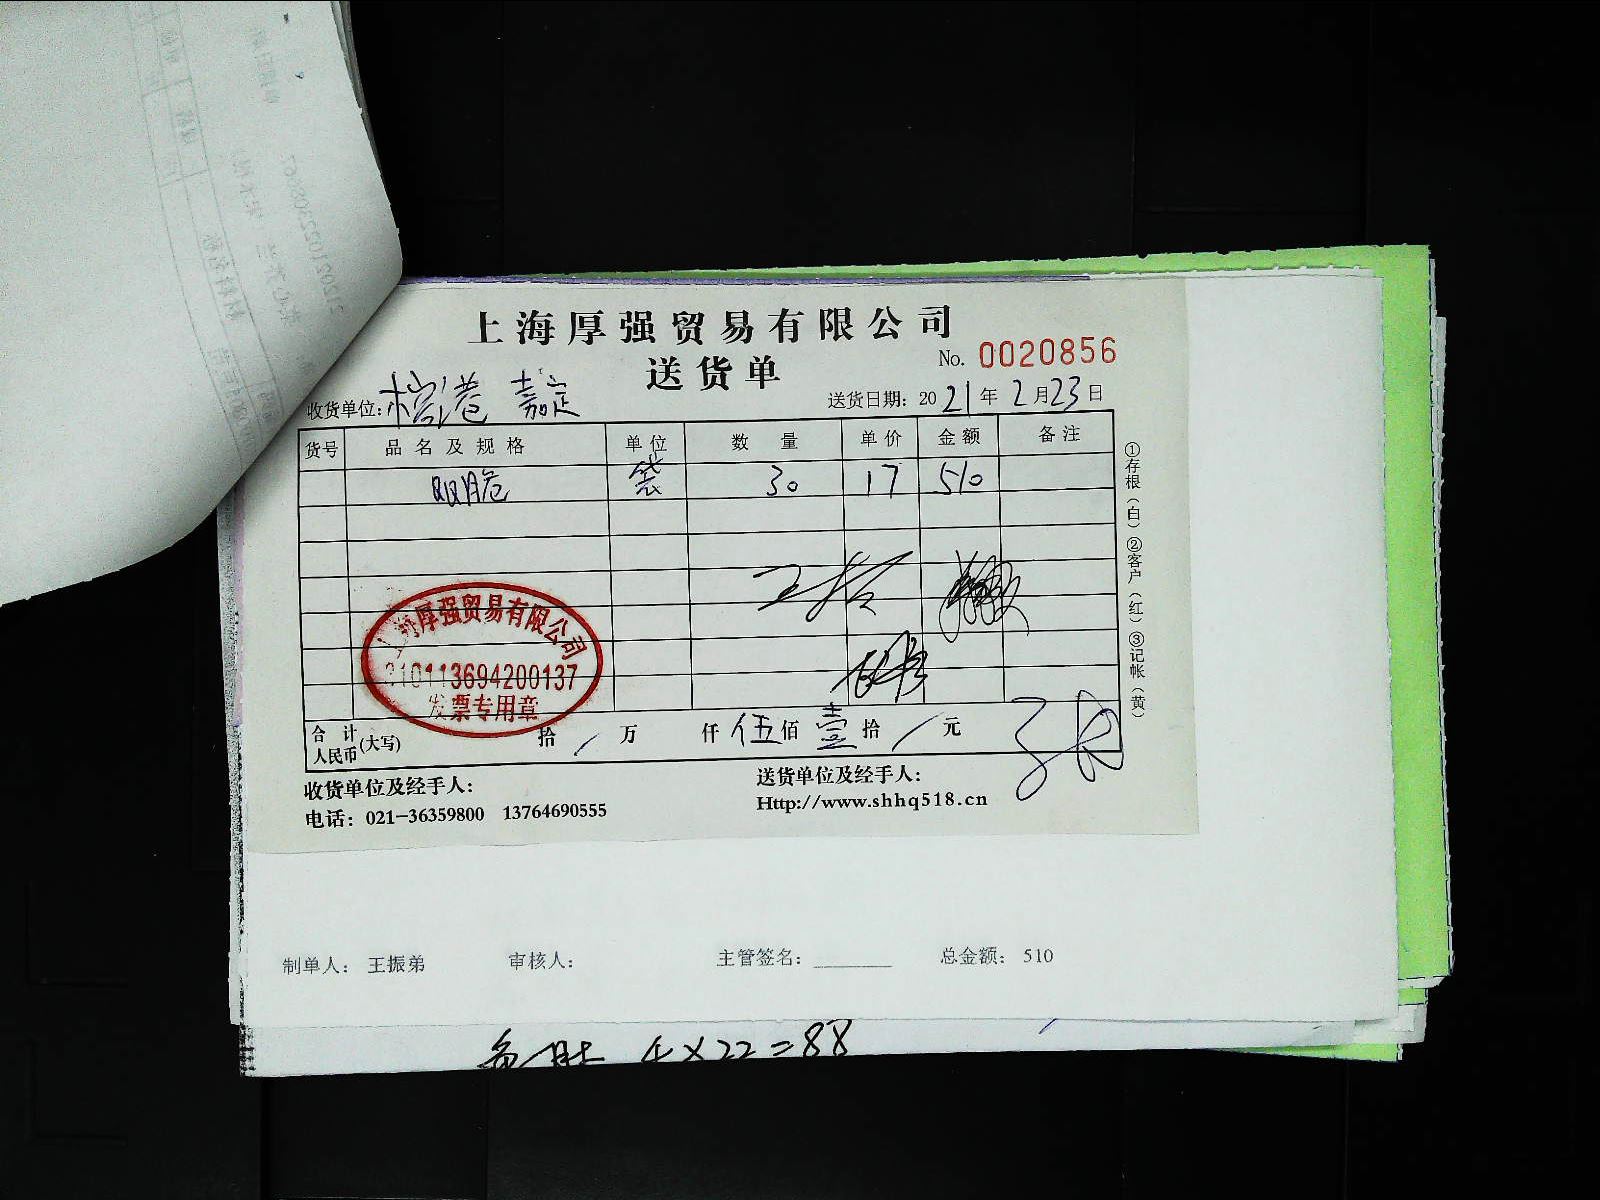 上海厚强贸易有限公司
送货单
No. 0020856
收货单位: 嘉定
送货日期: 2021年2月23日
货号 品名及规格 单位 数量 单价 金额 备注
双脆 袋 30 17 510
①存根(白) ②客户(红) ③记帐(黄)
上海厚强贸易有限公司
310113694200137
发票专用章
合计人民币(大写) 拾 / 万 仟 伍 佰 壹 拾 / 元
收货单位及经手人:
送货单位及经手人:
电话: 021-36359800 13764690555
Http://www.shhq518.cn
制单人: 王振弟 审核人: 主管签名: ________ 总金额: 510
4×22=88